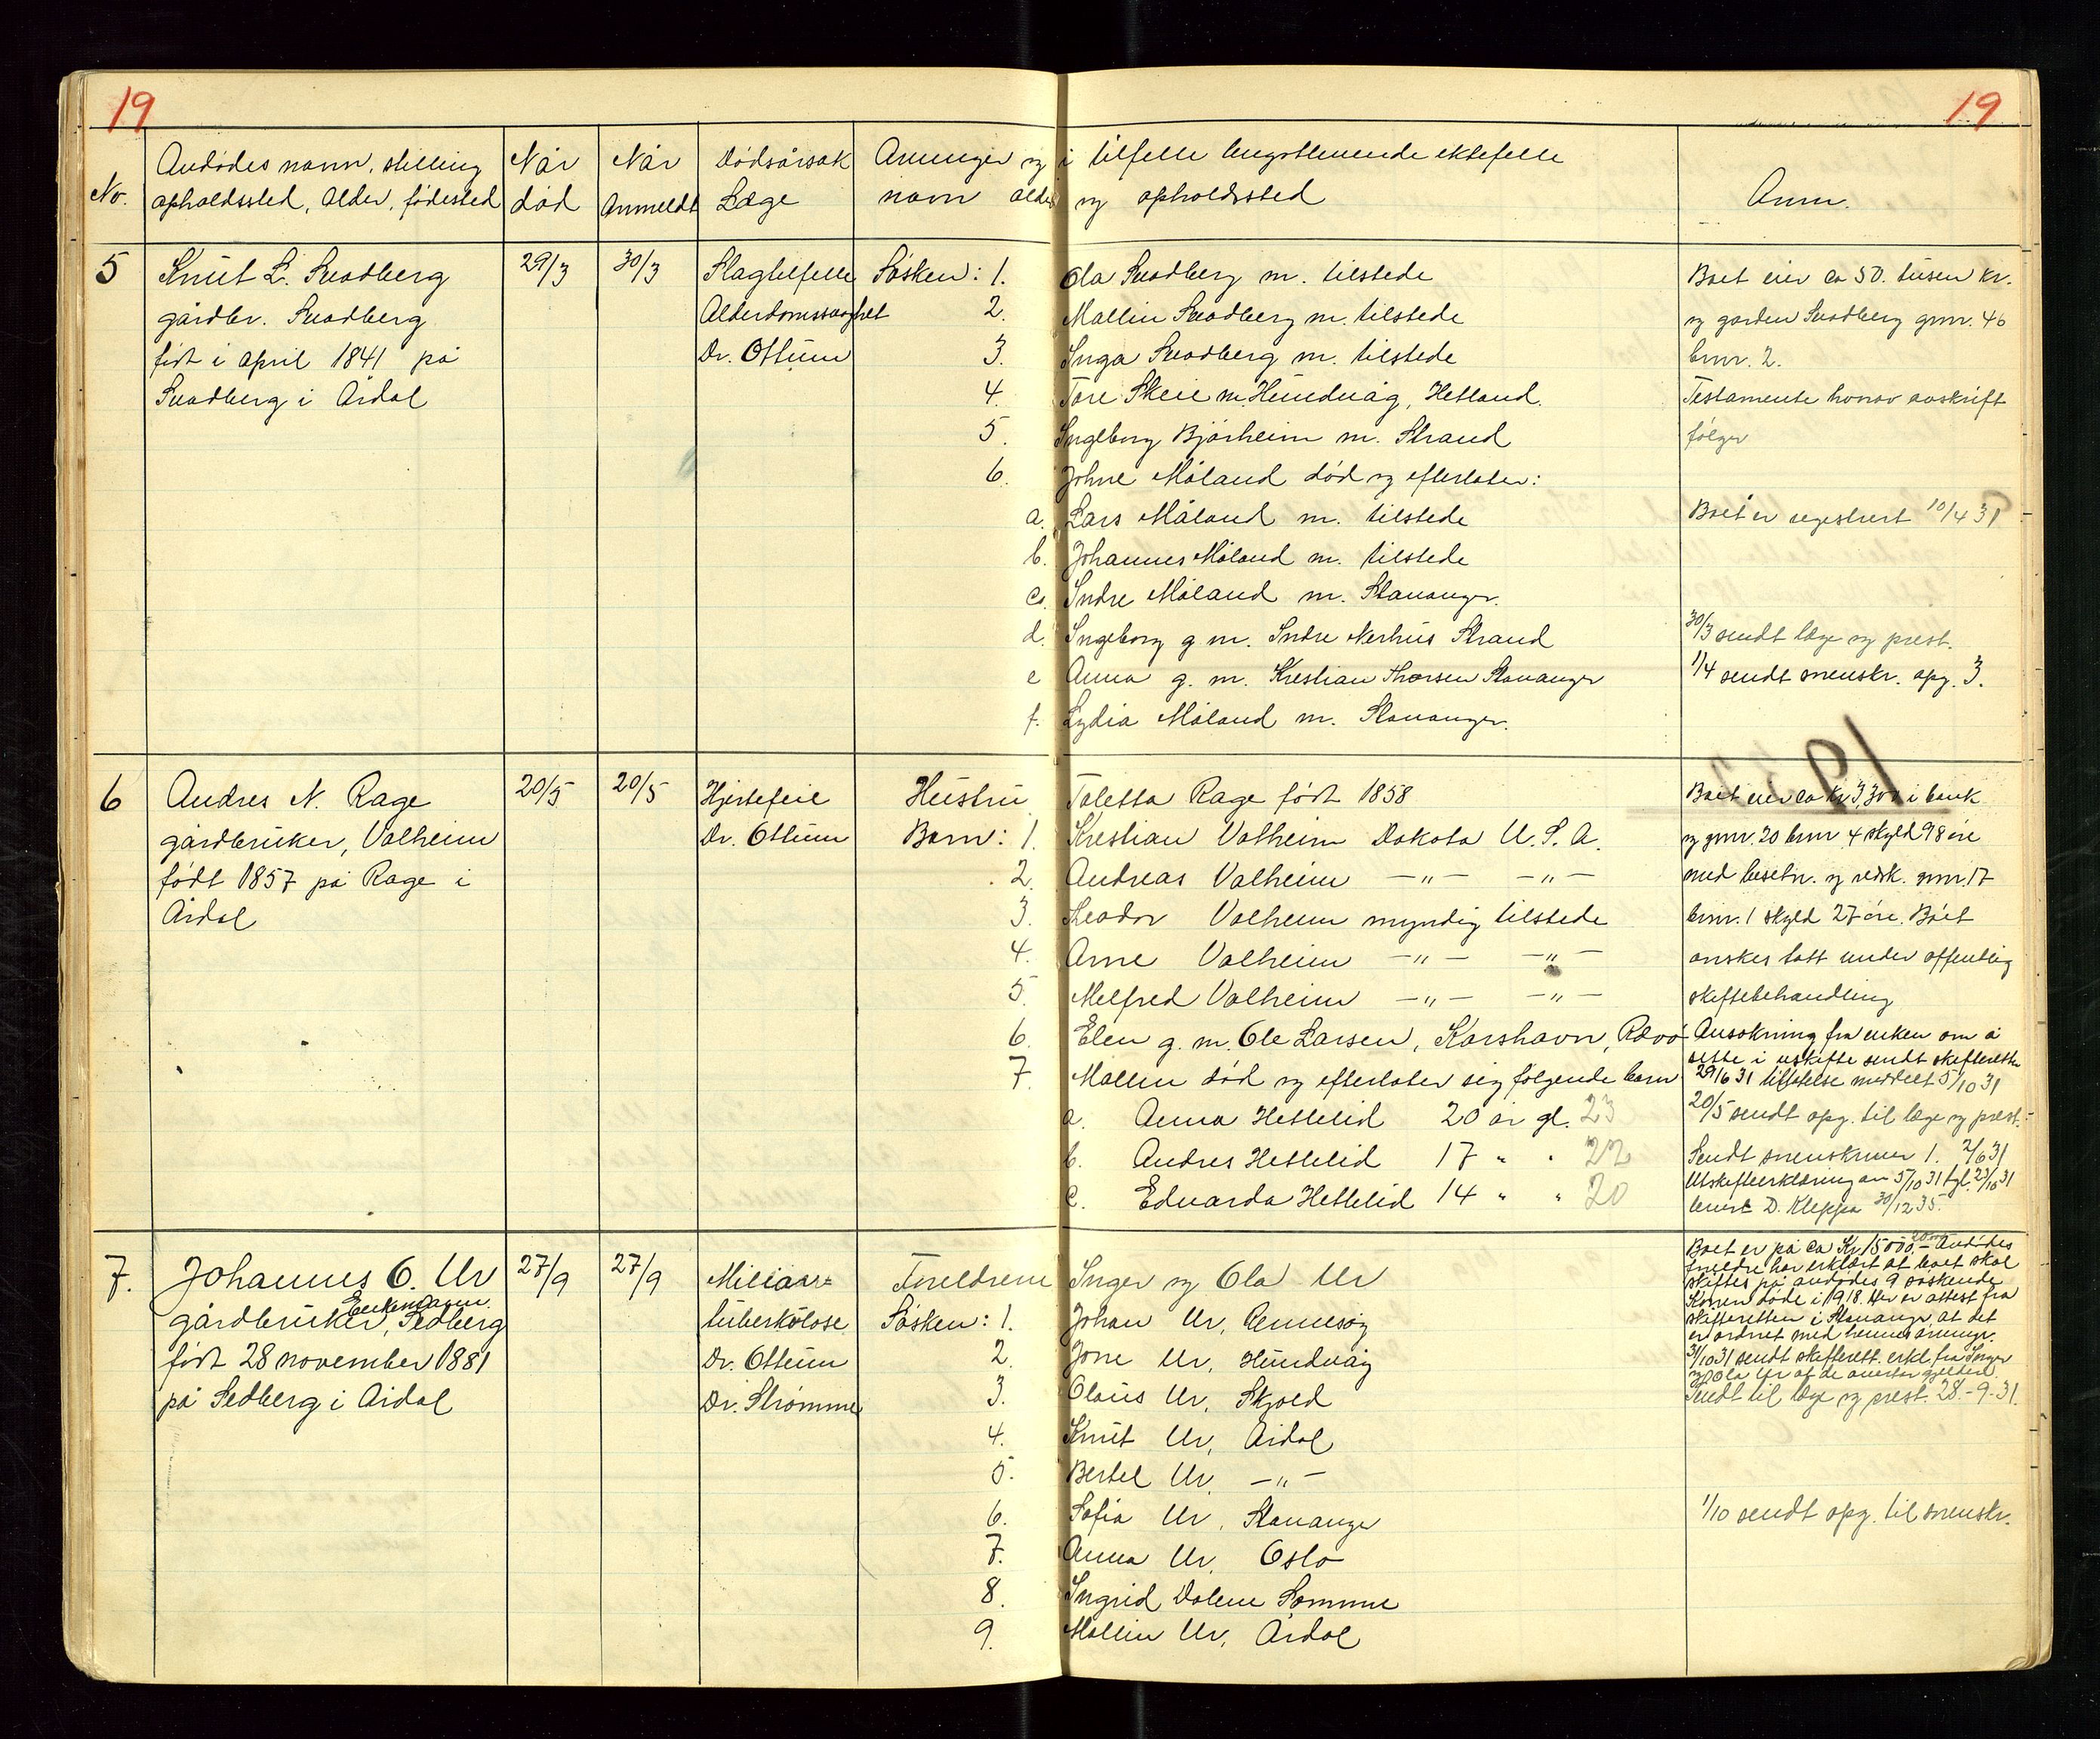 19
19
No.
Avdødes navn, stilling
opholdssted, alder, fødested
Når
død
Når
Anmeldt
Dødsårsak
Læge
Arvinger og i tilfelle lengstlevende ektefelle
navn alder og opholdssted
Anm.
5
Knut L. Svadberg
gårdbr. Svadberg
født i april 1841 på
Svadberg i Årdal
29/3
30/3
Slagtilfelle
Alderdomssvaghet
Dr. Ottum
Søsken: 1. Ola Svadberg m. tilstede
2. Mallin Svadberg m. tilstede
3. Inga Svadberg m. tilstede
4. Tore Skeie m. Hundvåg, Hetland.
5. Ingeborg Bjørheim m. Strand
6. Johne Måland død og efterlater:
a. Lars Måland m. tilstede
b. Johannes Måland m. tilstede
c. Sndre Måland m. Stavanger.
d. Ingeborg g. m. Sndre Nerhus Strand
e Anna g. m. Krestian Thorsen Stavanger
f. Lydia Måland m. Stavanger.
Boet eier ca 50. tusen kr.
og garden Svadberg gnr. 46
bnr. 2.
Testamente hvorav avskrift
følger
Boet er registrert 10/4 31
30/3 sendt læge og prest.
1/4 sendt svenskr. opg. 3.
6
Andres N. Rage
gårdbruker, Valheim
født 1857 på Rage i
Årdal
20/5
20/5
Hjertefeil
Dr. Ottum
Hustru Toletta Rage født 1858
Barn: 1. Krestian Valheim Dakota U.S.A.
2. Andreas Valheim —"— —"—
3. Teodor Valheim myndig tilstede
4. Arne Valheim —"— —"—
5. Melfred Valheim —"— —"—
6. Elen g. m. Ole Larsen, Korshavn,
7. Mallin død og efterlater sig følgende barn
a. Anna Hettelid 20 år gl. 23
b. Andres Hettelid 17 " " 22
c. Edvarda Hettelid 14 " " 20
Boet eier ca kr 3300 i bank
og gnr. 20 bnr 4 skyld 98 øre
med besetn. og redsk. gnr. 17
bnr. 1 skyld 27 øre. Boet
ønskes tatt under offentlig
skiftebehandling
Ansøkning fra enken om å
sitte i uskifte sendt skifteretten
29/6 31 tillatelse meddelt 5/10 31
20/5 sendt opg. til læge og prest.
Sendt svenskrever 1. 2/6 31
Uskifteerklæring av 5/10 31 tgl. 23/10 31
D. Kleppa 30/12 35.
7.
Johannes O. Ur
Enkemann
gårdbruker, Sedberg
født 28 november 1881
på Sedberg i Årdal
27/9
27/9
Miliær=
tuberkulose
Dr. Ottum
Dr. Strømme
Foreldrene Inger og Ola Ur
Søsken: 1. Johan Ur, Rennesøy
2. Jone Ur, Hundvåg
3. Olaus Ur, Skjold
4. Knut Ur, Årdal
5. Bertel Ur, —"—
6. Sofia Ur, Stavanger
7. Anna Ur, Oslo
8. Ingrid Dalene Sømme
9. Mallin Ur, Årdal
Boet er på ca Kr 15000.– Avdødes
foreldre har erklært at boet skal
skiftes på avdødes 9 søskende
Konen døde i 1918. Her er attest fra
skifteretten i Stavanger, at det
er ordnet med hennes arvinger.
31/10 31 sendt skifterett. erkl. fra Inger
og Ola Ur at de overtar gjelden.
Sendt til læge og prest. 28.-9-31.
1/10 sendt opg. til svenskr.